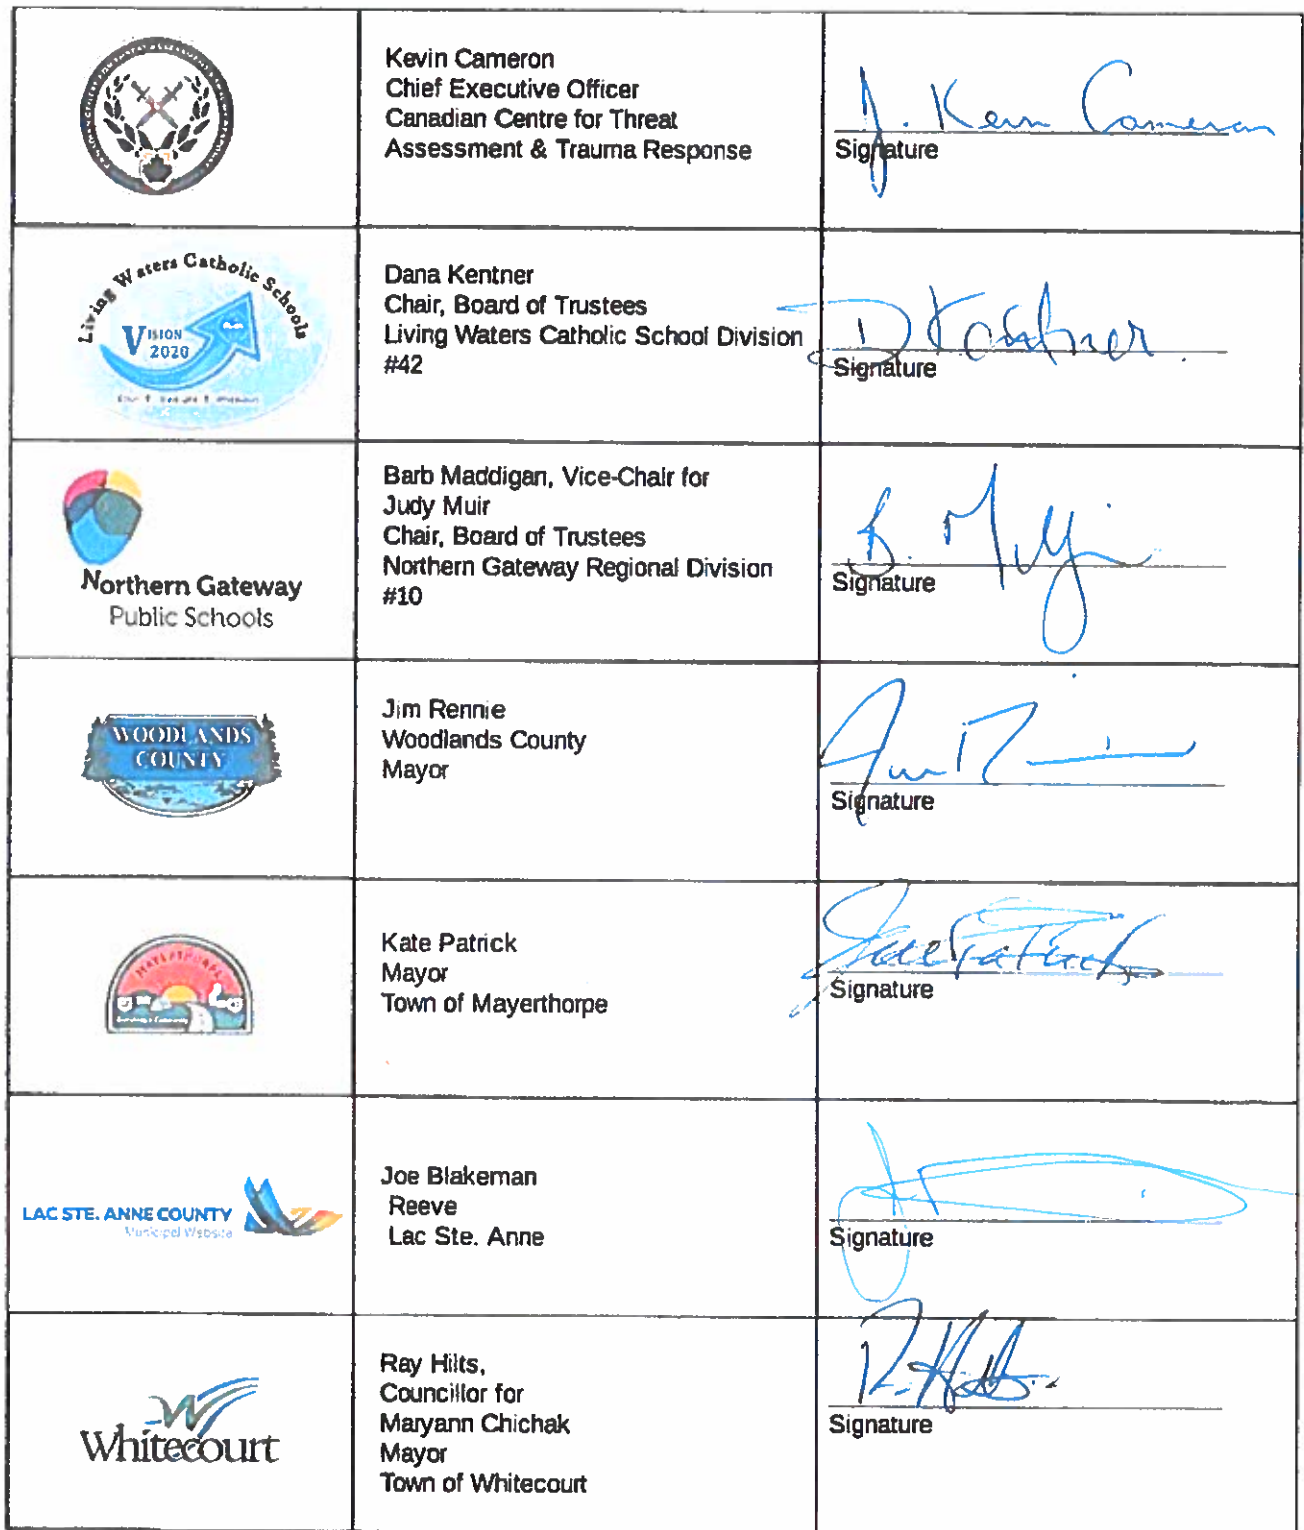 Kevin Cameron
Chief Executive Officer
Canadian Centre for Threat
Assessment & Trauma Response
J. Kevin Cameron
Signature
Living Waters Catholic Schools
VISION
2020
Dana Kentner
Chair, Board of Trustees
Living Waters Catholic School Division
#42
D Kentner
Signature
Northern Gateway
Public Schools
Barb Maddigan, Vice-Chair for
Judy Muir
Chair, Board of Trustees
Northern Gateway Regional Division
#10
Signature
WOODLANDS
COUNTY
Jim Rennie
Woodlands County
Mayor
Signature
MAYERTHORPE
Kate Patrick
Mayor
Town of Mayerthorpe
Signature
LAC STE. ANNE COUNTY
Municipal Website
Joe Blakeman
Reeve
Lac Ste. Anne
Signature
Whitecourt
Ray Hilts,
Councillor for
Maryann Chichak
Mayor
Town of Whitecourt
Signature